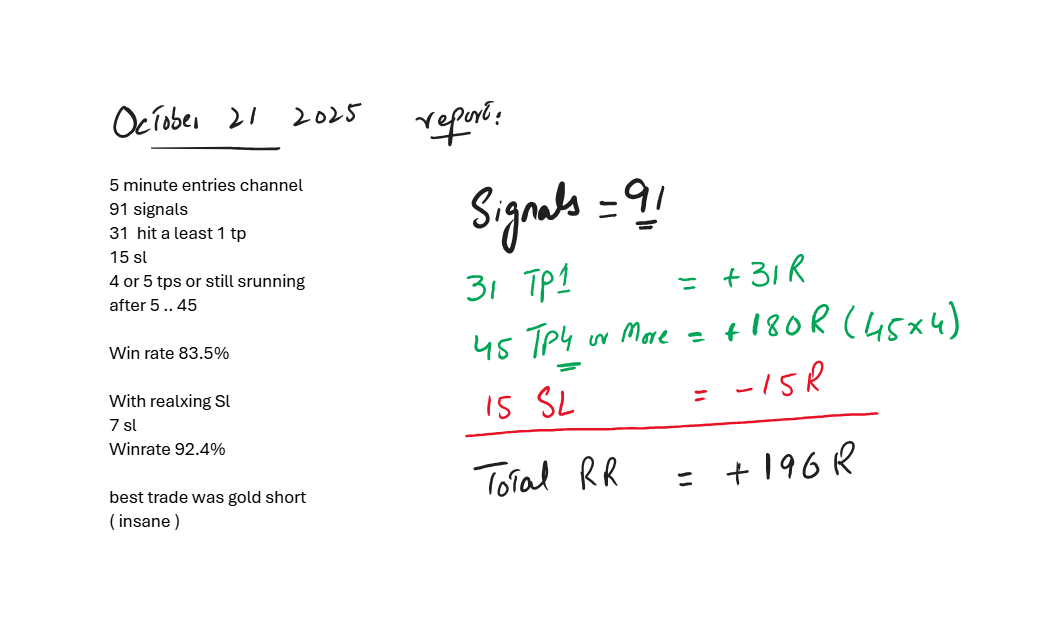 October 21 2025 report:
5 minute entries channel
91 signals
31 hit a least 1 tp
15 sl
4 or 5 tps or still srunning
after 5 .. 45
Win rate 83.5%
With realxing Sl
7 sl
Winrate 92.4%
best trade was gold short
( insane )
Signals = 91
31 TP1 = +31R
45 TP4 or More = +180R (45x4)
15 SL = -15R
Total RR = +196R